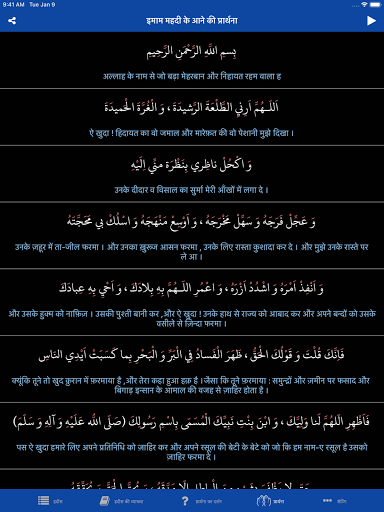 9:41 AM Tue Jan 9
इमाम महदी के आने की प्रार्थना
بِسمِ اللَّهِ الرَّحْمَنِ الرَّحِيمِ
अल्लाह के नाम से जो बड़ा मेहरबान और निहायत रहम वाला ह
اَللَّـهُمَّ اَرِنيِ الطَّلْعَةَ الرَّشيدَةَ ، وَ الْغُرَّةَ الْحَميدَةَ
ऐ खुदा ! हिदायत का वो जमाल और मारेफ़त की वो पेशानी मुझे दिखा ।
وَ اكْحُلْ ناظِري بِنَظْرَة منِّي اِلَيْهِ
उनके दीदार व विसाल का सुर्मा मेरी आँखों में लगा दे ।
وَ عَجِّلْ فَرَجَهُ وَ سَهِّلْ مَخْرَجَهُ ، وَ اَوْسِعْ مَنْهَجَهُ وَ اسْلُكْ بي مَحَجَّتَهُ
उनके ज़हूर में ता-जील फरमा । और उनका ख़ुरूज आसन फरमा , उनके लिए रास्ता कुशादा कर दे । और मुझे उनके रास्ते पर
ले आ ।
وَ اَنْفِذْ اَمْرَهُ وَ اشْدُدْ اَزْرَهُ ، وَ اعْمُرِ اللَّـهُمَّ بِهِ بِلادَكَ ، وَ اَحْيِ بِهِ عِبادَكَ
और उसके हुक्म को नाफ़िज़ । उसकी पुश्ती बानी कर ,और ऐ खुदा ! उनके हाथ से राज्य को आबाद कर और अपने बन्दों को उसके
वसीले से ज़िन्दा फरमा ।
فَاِنَّكَ قُلْتَ وَ قَوْلُكَ الْحَقُّ ، ظَهَرَ الْفَسادُ فِي الْبَرِّ وَ الْبَحْرِ بِما كَسَبَتْ اَيْدِي النّاسِ
क्योंकि तूने तो खुद क़ुरान में फ़रमाया है ,और तेरा कहा हुआ हक़ है ।जैसा कि तूने फ़रमाया : समुन्द्रों और ज़मीन पर फसाद और
बिगाड़ इन्सान के आमाल की वजह से ज़ाहिर होता है ।
فَاَظْهِرِ اللّهُمَّ لَنا وَلِيَّكَ ، وَ ابْنَ بِنْتِ نَبِيِّكَ الْمُسَمّى بِاسْمِ رَسُولِكَ (صَلَّى اللهُ عَلَيْهِ وَ آلِهِ وَ سَلَّمَ)
पस ऐ खुदा हमारे लिए अपने प्रतिनिधि को ज़ाहिर कर और अपने रसूल की बेटी के बेटे को जो कि हम नाम-ए रसूल है उसको
ज़ाहिर फरमा दे ।
हदीस
हदीस की व्याख्या
प्रार्थना
सेटिंग